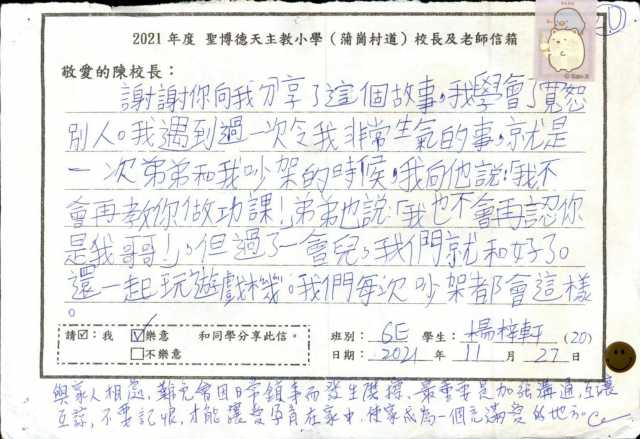 2021 年度 聖博德天主教小學（蒲崗村道）校長及老師信箱
敬愛的陳校長：
謝謝你向我分享了這個故事，我學會了寬恕
別人。我遇到過一次令我非常生氣的事，就是
一次弟弟和我吵架的時候，我向他說：「我不
會再教你做功課！」弟弟也說：「我也不會再認你
是我哥！」，但過了一會兒，我們就和好了。
還一起玩遊戲機。我們每次吵架都會這樣
。
請☑：我 ☑樂意 和同學分享此信。 班別： 6E 學生： 楊梓軒 (20)
□不樂意 日期： 2021 年 11 月 27 日
與家人相處，難免會因日常鎖事而發生磨擦，最重要是加強溝通，互讓
互諒，不要記恨，才能讓愛孕育在家中，使家成為一個充滿愛的地方。